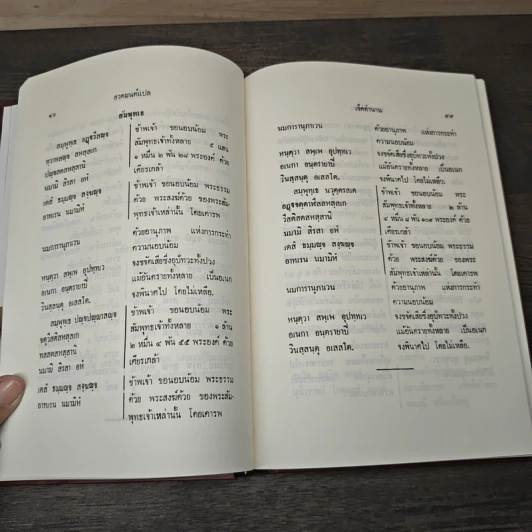 ๑๖
สวดมนต์แปล
สัมพุทเธ
สมฺพุทฺเธ อฏฺฐวีสญฺจ
ทฺวาทสญฺจ สหสฺสเก
ปญฺจสตสหสฺสานิ
นมามิ สิรสา อหํ
เตสํ ธมฺมญฺจ สงฺฆญฺจ
อาทเรน นมามิหํ
นมการานุภาเวน
หนฺตฺวา สพฺเพ อุปทฺทเว
อเนกา อนฺตรายาปิ
วินสฺสนฺตุ อเสสโต.
สมฺพุทฺเธ ปญฺจปญฺญาสญฺจ
จตุวีสติสหสฺสเก
ทสสตสหสฺสานิ
นมามิ สิรสา อหํ
เตสํ ธมฺมญฺจ สงฺฆญฺจ
อาทเรน นมามิหํ
ข้าพเจ้า ขอนอบน้อม พระ
สัมพุทธเจ้าทั้งหลาย ๕ แสน
๑ หมื่น ๒ พัน ๒๘ พระองค์ ด้วย
เศียรเกล้า
ข้าพเจ้า ขอนอบน้อม พระธรรม
ด้วย พระสงฆ์ด้วย ของพระสัม-
พุทธเจ้าเหล่านั้น โดยเคารพ
ด้วยอานุภาพ แห่งการกระทำ
ความนอบน้อม
จงขจัดเสียซึ่งอุปัทวะทั้งปวง
แม้อันตรายทั้งหลาย เป็นอเนก
จงพินาศไป โดยไม่เหลือ.
ข้าพเจ้า ขอนอบน้อม พระ
สัมพุทธเจ้าทั้งหลาย ๑ ล้าน
๒ หมื่น ๔ พัน ๕๕ พระองค์ ด้วย
เศียรเกล้า
ข้าพเจ้า ขอนอบน้อม พระธรรม
ด้วย พระสงฆ์ด้วย ของพระสัม-
พุทธเจ้าเหล่านั้น โดยเคารพ
เจ็ดตำนาน
๑๗
นมการานุภาเวน
หนฺตฺวา สพฺเพ อุปทฺทเว
อเนกา อนฺตรายาปิ
วินสฺสนฺตุ อเสสโต.
สมฺพุทฺเธ นวุตฺตรสเต
อฏฺฐจตฺตาฬีสสหสฺสเก
วีสติสตสหสฺสานิ
นมามิ สิรสา อหํ
เตสํ ธมฺมญฺจ สงฺฆญฺจ
อาทเรน นมามิหํ
นมการานุภาเวน
หนฺตฺวา สพฺเพ อุปทฺทเว
อเนกา อนฺตรายาปิ
วินสฺสนฺตุ อเสสโต.
ด้วยอานุภาพ แห่งการกระทำ
ความนอบน้อม
จงขจัดเสียซึ่งอุปัทวะทั้งปวง
แม้อันตรายทั้งหลาย เป็นอเนก
จงพินาศไป โดยไม่เหลือ.
ข้าพเจ้า ขอนอบน้อม พระ
สัมพุทธเจ้าทั้งหลาย ๒ ล้าน
๔ หมื่น ๘ พัน ๑๐๙ พระองค์ ด้วย
เศียรเกล้า
ข้าพเจ้า ขอนอบน้อม พระธรรม
ด้วย พระสงฆ์ด้วย ของพระ
สัมพุทธเจ้าเหล่านั้น โดยเคารพ
ด้วยอานุภาพ แห่งการกระทำ
ความนอบน้อม
จงขจัดเสียซึ่งอุปัทวะทั้งปวง
แม้อันตรายทั้งหลาย เป็นอเนก
จงพินาศไป โดยไม่เหลือ.